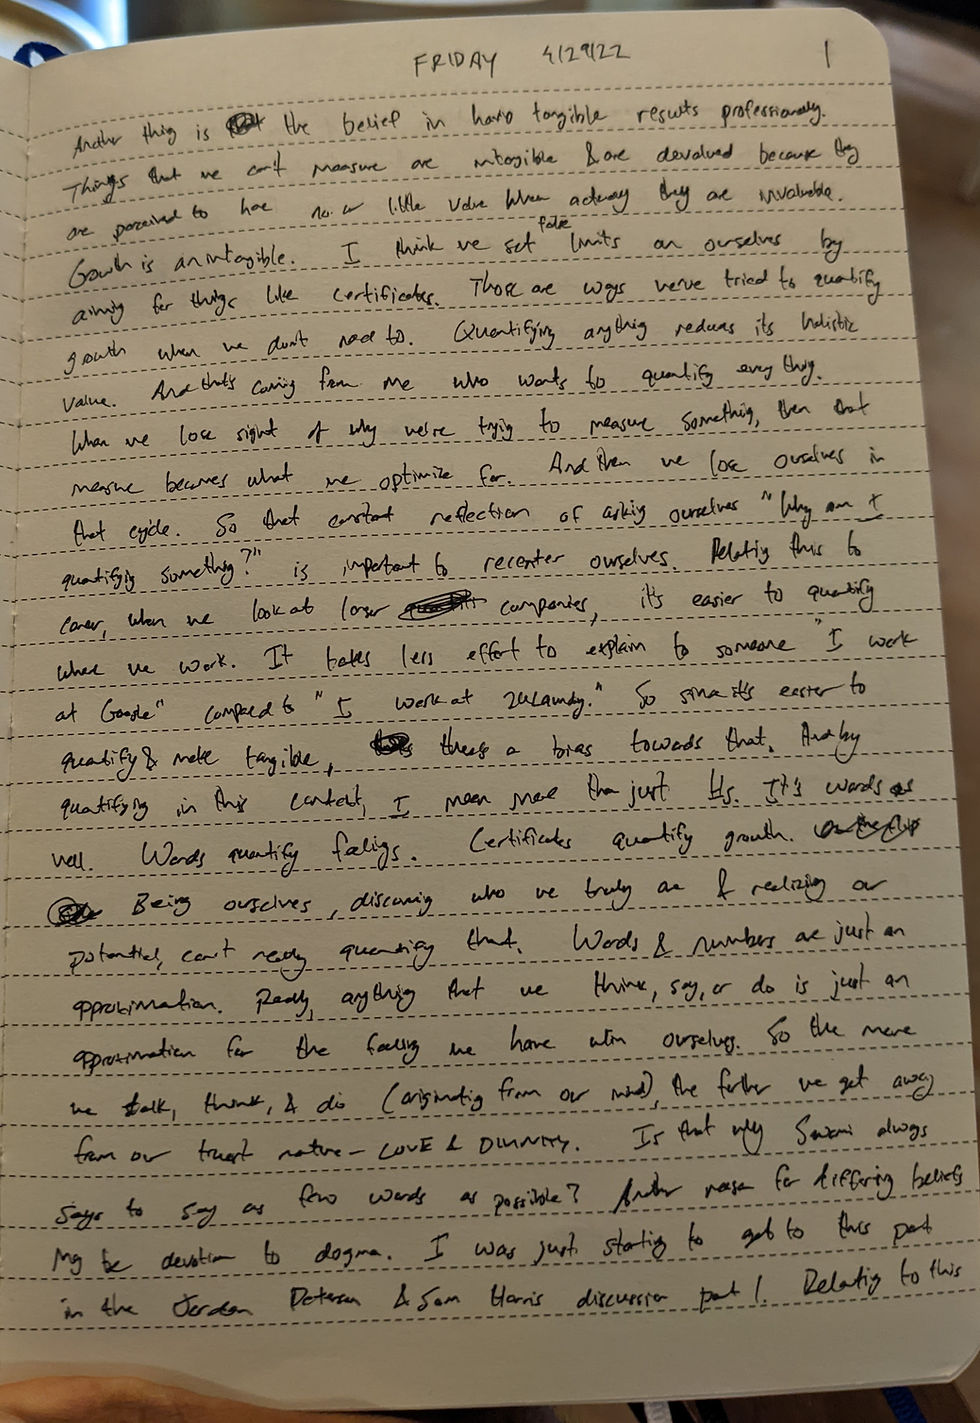 FRIDAY 4/29/22 1
Another thing is the belief in having tangible results professionally.
Things that we can't measure are intangible & are devalued because they
are perceived to have no or little value when actually they are invaluable.
Growth is an intangible. I think we set false limits on ourselves by
aiming for things like certificates. Those are ways we've tried to quantify
growth when we don't need to. Quantifying anything reduces its holistic
value. And that's coming from me who wants to quantify everything.
When we lose sight of why we're trying to measure something, then that
measure becomes what we optimize for. And then we lose ourselves in
that cycle. So that constant reflection of asking ourselves "Why am I
quantifying something?" is important to recenter ourselves. Relating this to
career, when we look at larger companies, it's easier to quantify
where we work. It takes less effort to explain to someone "I work
at Google" compared to "I work at ." So since it's easier to
quantify & make tangible, there's a bias towards that. And by
quantifying in this context, I mean more than just #s. It's words as
well. Words quantify feelings. Certificates quantify growth.
Being ourselves, discovering who we truly are & realizing our
potential, can't really quantify that. Words & numbers are just an
approximation. Really, anything that we think, say, or do is just an
approximation for the feeling we have w/in ourselves. So the more
we talk, think, & do (originating from our mind), the farther we get away
from our truest nature - LOVE & DIVINITY. Is that why Swami always
says to say as few words as possible? Another reason for differing beliefs
may be devotion to dogma. I was just starting to get to this part
in the Jordan Peterson & Sam Harris discussion part 1. Relating to this